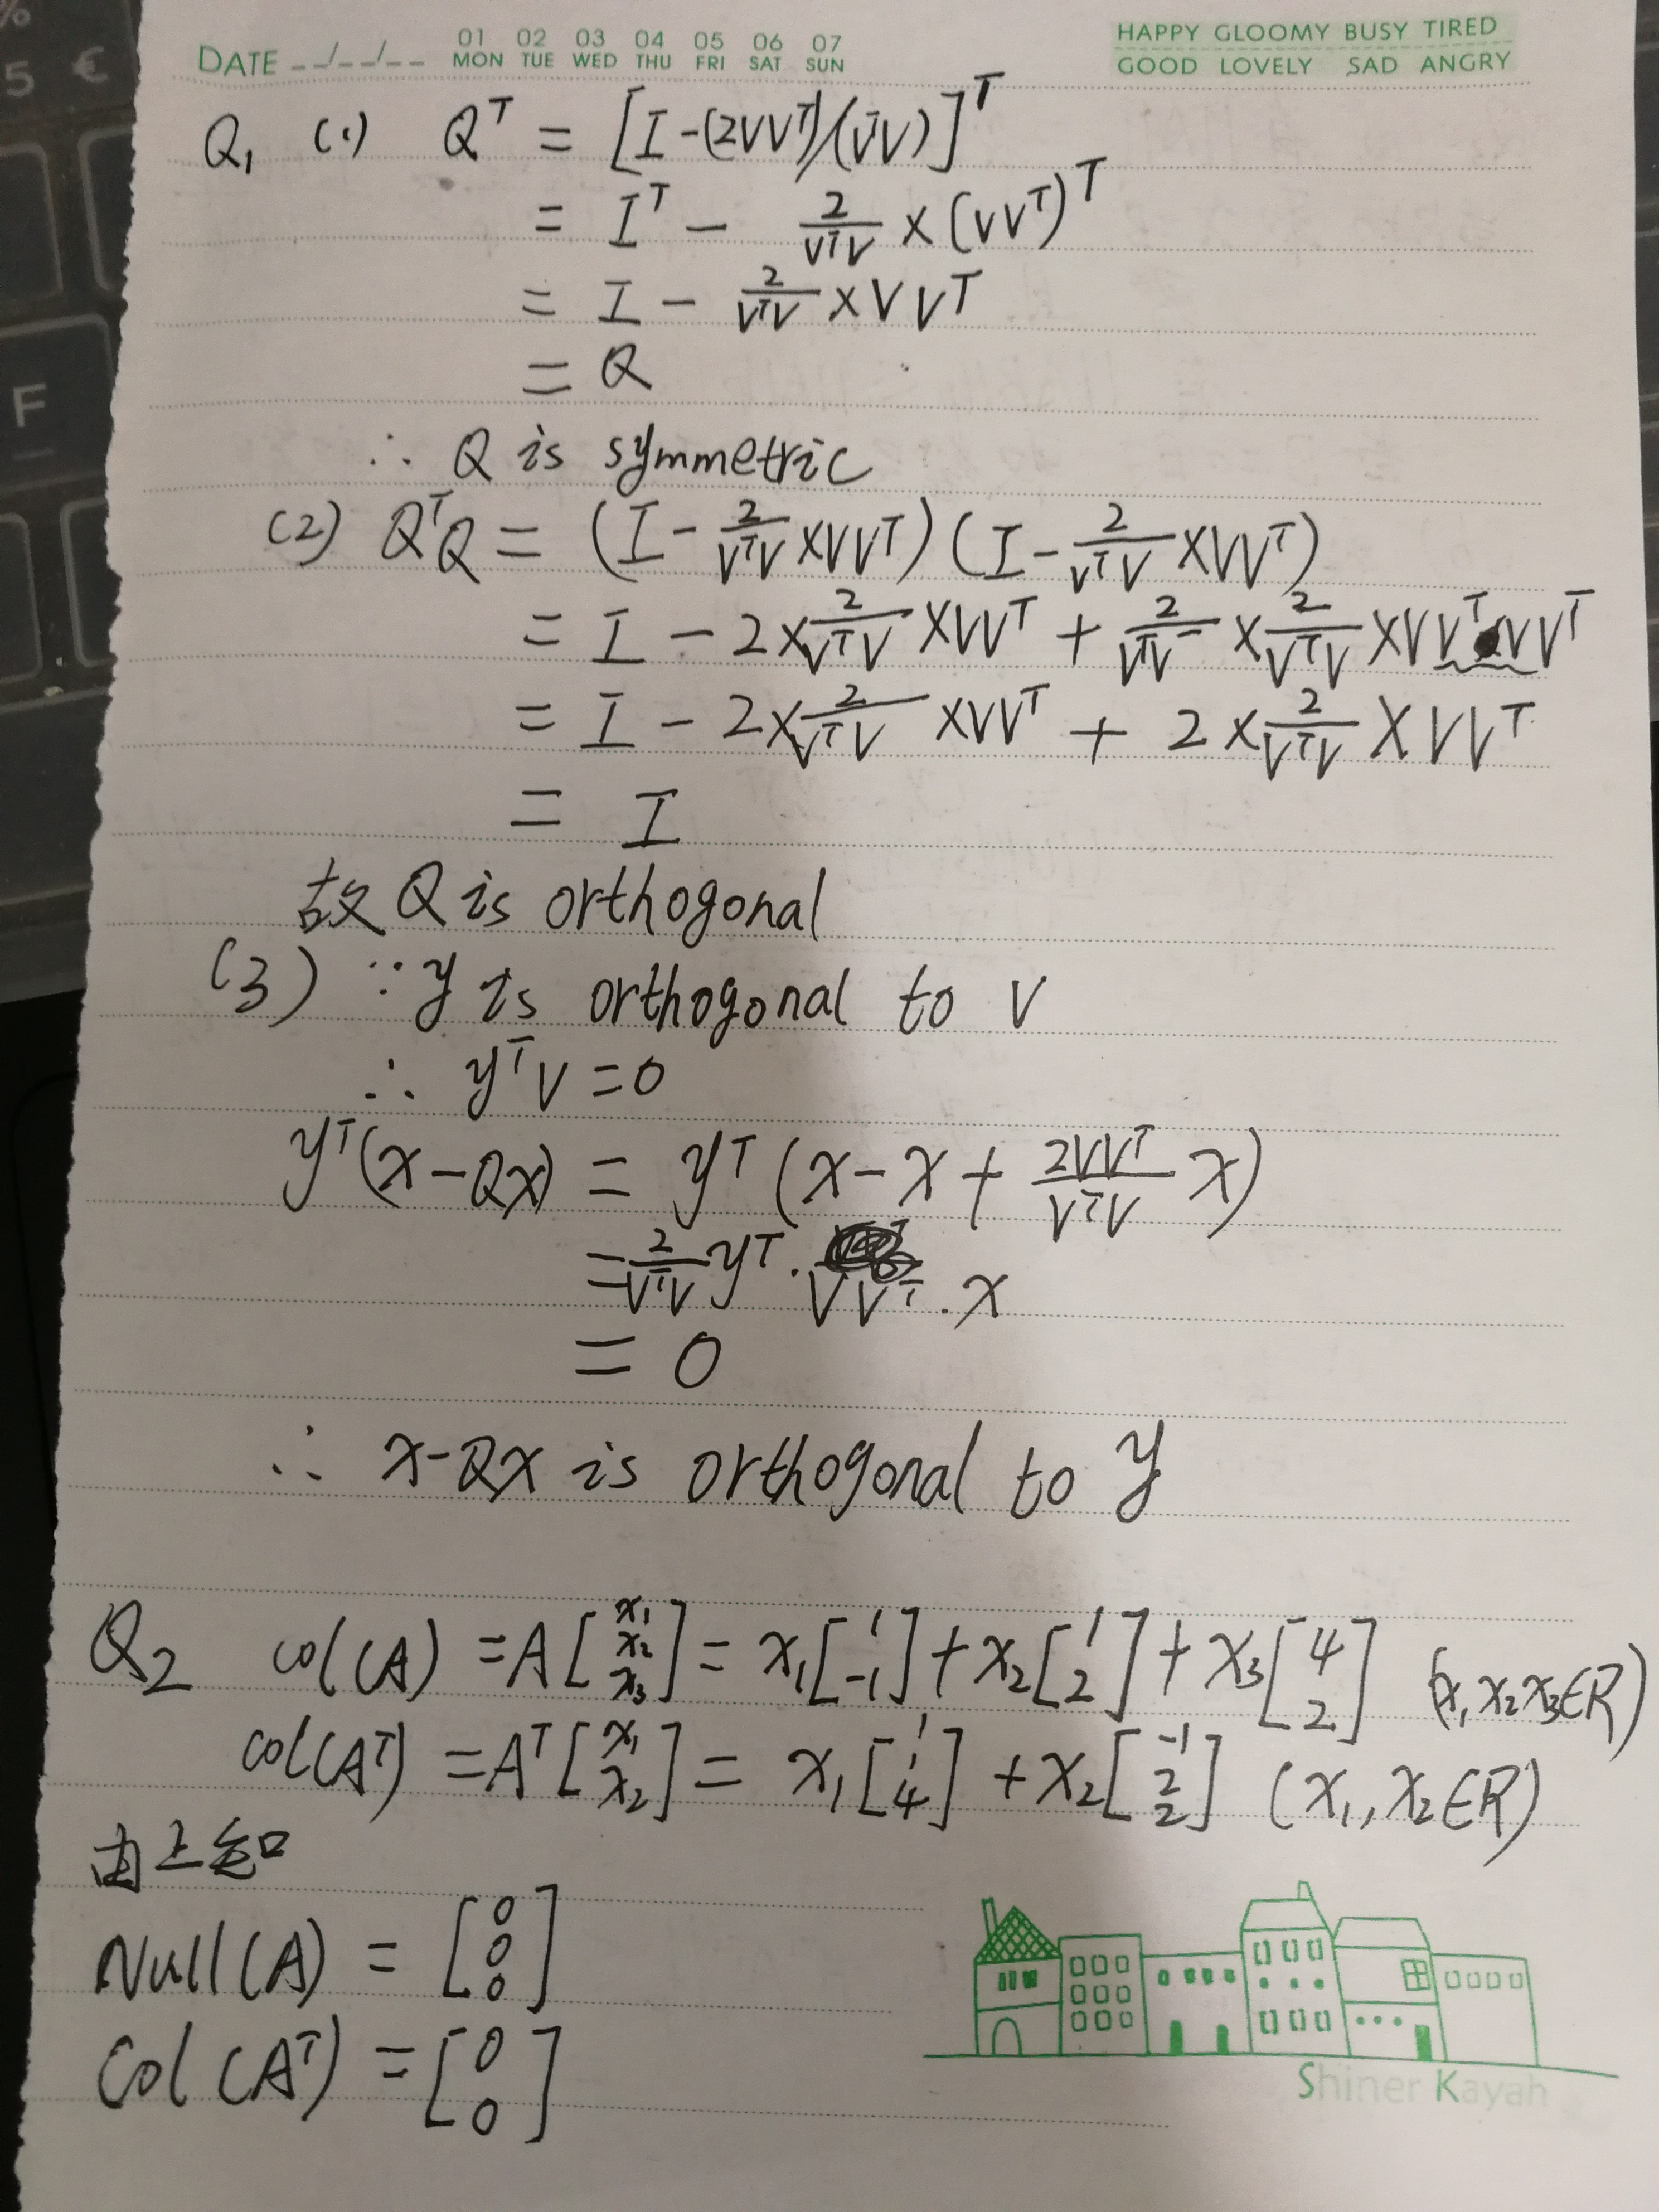 %
5 €
F
DATE __/__/__ 01 MON 02 TUE 03 WED 04 THU 05 FRI 06 SAT 07 SUN
HAPPY GLOOMY BUSY TIRED
GOOD LOVELY SAD ANGRY
Q₁ (1) Qᵀ = [I-(2VVᵀ)/(VᵀV)]ᵀ
= Iᵀ - 2/VᵀV × (VVᵀ)ᵀ
= I - 2/VᵀV × VVᵀ
= Q
∴ Q is symmetric
(2) QᵀQ = (I - 2/VᵀV × VVᵀ)(I - 2/VᵀV × VVᵀ)
= I - 2 × 2/VᵀV × VVᵀ + 2/VᵀV × 2/VᵀV × VVᵀVVᵀ
= I - 2 × 2/VᵀV × VVᵀ + 2 × 2/VᵀV × VVᵀ
= I
故 Q is orthogonal
(3) ∵ y is orthogonal to V
∴ yᵀV = 0
yᵀ(x-Qx) = yᵀ(x - x + 2VVᵀ/VᵀV x)
= 2/VᵀV yᵀ · VVᵀ · x
= 0
∴ x-Qx is orthogonal to y
Q₂ col(A) = A[x₁ x₂ x₃] = x₁[1 -1] + x₂[1 2] + x₃[4 2] (x₁x₂x₃∈R)
col(Aᵀ) = Aᵀ[x₁ x₂] = x₁[1 1 4] + x₂[-1 2 2] (x₁,x₂∈R)
由上知
Null(A) = [0 0 0]
Col(Aᵀ) = [0 0]
Shiner Kayah